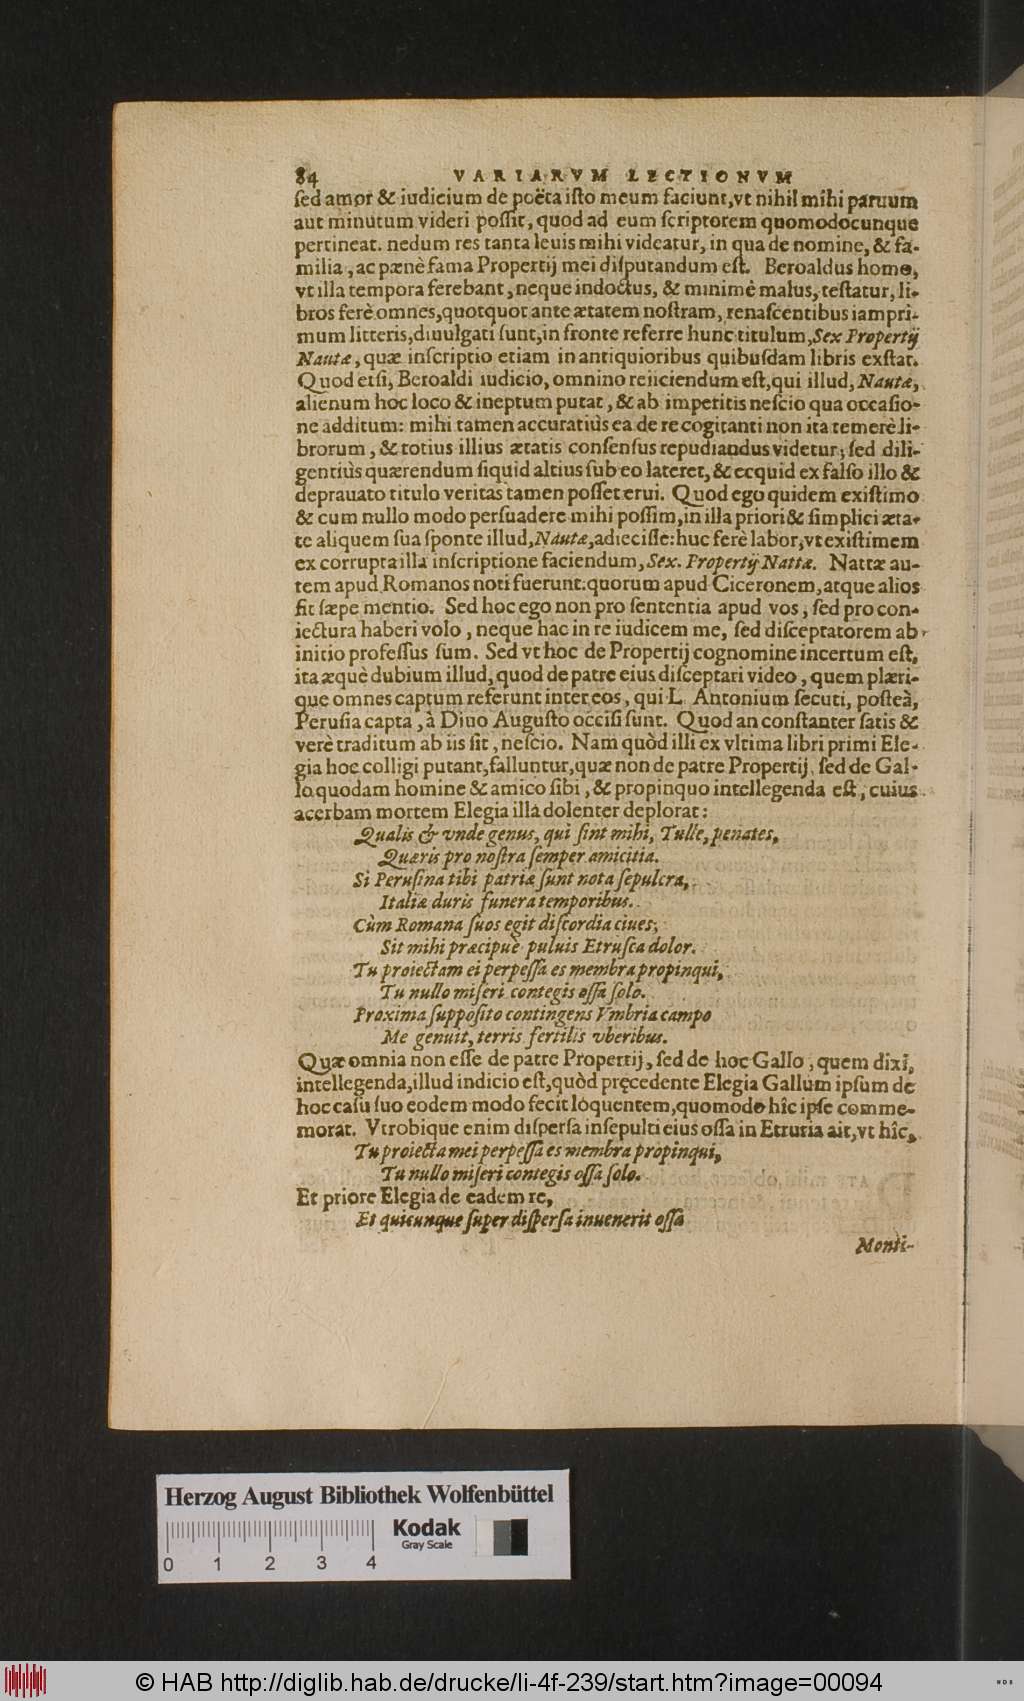 84 VARIARVM LECTIONVM
ſed amor & iudicium de poëta iſto meum faciunt, vt nihil mihi paruum
aut minutum videri poſſit, quod ad eum ſcriptorem quomodocunque
pertineat. nedum res tanta leuis mihi videatur, in qua de nomine, & fa-
milia, ac pænè fama Propertij mei diſputandum eſt. Beroaldus homo,
vt illa tempora ferebant, neque indoctus, & minimè malus, teſtatur, li-
bros ferè omnes, quotquot ante ætatem noſtram, renaſcentibus iam pri-
mum litteris, diuulgati ſunt, in fronte referre hunc titulum, Sex Propertij
Nautæ, quæ inſcriptio etiam in antiquioribus quibuſdam libris exſtat.
Quod etſi, Beroaldi iudicio, omnino reiiciendum eſt, qui illud, Nautæ,
alienum hoc loco & ineptum putat, & ab imperitis neſcio qua occaſio-
ne additum: mihi tamen accuratiùs ea de re cogitanti non ita temerè li-
brorum, & totius illius ætatis conſenſus repudiandus videtur; ſed dili-
gentiùs quærendum ſiquid altius ſub eo lateret, & ecquid ex falſo illo &
deprauato titulo veritas tamen poſſet erui. Quod ego quidem exiſtimo
& cum nullo modo perſuadere mihi poſſim, in illa priori & ſimplici æta-
te aliquem ſua ſponte illud, Nautæ, adieciſſe: huc ferè labor, vt exiſtimem
ex corrupta illa inſcriptione faciendum, Sex. Propertij Nattæ. Nattæ au-
tem apud Romanos noti fuerunt: quorum apud Ciceronem, atque alios
fit ſæpe mentio. Sed hoc ego non pro ſententia apud vos, ſed pro con-
iectura haberi volo, neque hac in re iudicem me, ſed diſceptatorem ab
initio profeſſus ſum. Sed vt hoc de Propertij cognomine incertum eſt,
ita æquè dubium illud, quod de patre eius diſceptari video, quem plæri-
que omnes captum referunt inter eos, qui L. Antonium ſecuti, poſteà,
Peruſia capta, à Diuo Auguſto occiſi ſunt. Quod an conſtanter ſatis &
verè traditum ab iis ſit, neſcio. Nam quòd illi ex vltima libri primi Ele-
gia hoc colligi putant, falluntur, quæ non de patre Propertij, ſed de Gal-
lo quodam homine & amico ſibi, & propinquo intellegenda eſt, cuius
acerbam mortem Elegia illa dolenter deplorat:
Qualis & vnde genus, qui ſint mihi, Tulle, penates,
Quæris pro noſtra ſemper amicitia.
Si Peruſina tibi patriæ ſunt nota ſepulcra,
Italiæ duris funera temporibus.
Cùm Romana ſuos egit diſcordia ciues;
Sit mihi præcipuè puluis Etruſca dolor.
Tu proiectam ei perpeſſa es membra propinqui,
Tu nullo miſeri contegis oſſa ſolo.
Proxima ſuppoſito contingens Vmbria campo
Me genuit, terris fertilis vberibus.
Quæ omnia non eſſe de patre Propertij, ſed de hoc Gallo, quem dixi,
intellegenda, illud indicio eſt, quòd pręcedente Elegia Gallum ipſum de
hoc caſu ſuo eodem modo fecit loquentem, quomodo hîc ipſe comme-
morat. Vtrobique enim diſperſa inſepulti eius oſſa in Etruria ait, vt hîc,
Tu proiecta mei perpeſſa es membra propinqui,
Tu nullo miſeri contegis oſſa ſolo.
Et priore Elegia de eadem re,
Et quicunque ſuper diſperſa inuenerit oſſa
Monti-
Herzog August Bibliothek Wolfenbüttel
Kodak
Gray Scale
0 1 2 3 4
© HAB http://diglib.hab.de/drucke/li-4f-239/start.htm?image=00094